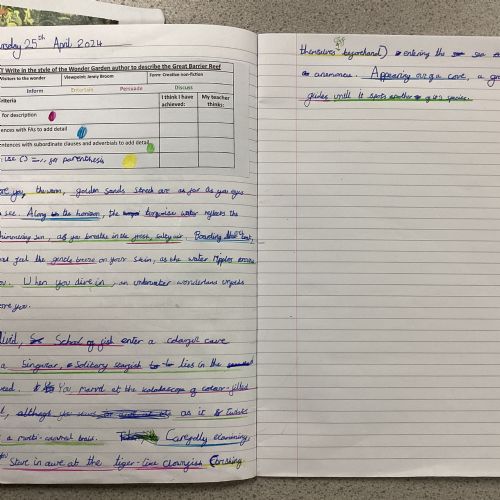 rsday 25th April 2024
Write in the style of the Wonder Garden author to describe the Great Barrier Reef
Visitors to the wonder
Viewpoint: Jenny Broom
Form: Creative non-fiction
Inform
Entertain
Persuade
Discuss
Criteria
I think I have achieved:
My teacher thinks:
for description
ences with FAs to add detail
entences with subordinate clauses and adverbials to add detail
use () for parenthesis
ore you, the warm, golden sands streck out as far as you eyes
see. Along the horizon, the turquoise water reflects the
shimmering sun, as you breathe in the fresh, salty air. Boarding the boat,
feel the gentle breeze on your skin, as the water ripples around
ou. When you dive in, an underwater wonderland unfolds
ore you.
School of fish enter a colourful cave
a Singular, Solitary starfish lies in the
eed. You marvel at the kaleidoscope of colour-filled
although as it twists
a multi-coloured
Carefully examining,
you stare in awe at the tiger-like clownfish (brushing
themselves beforehand) entering the sea
anemone. Appearing over a cove, a
glides until it spots another of its species.